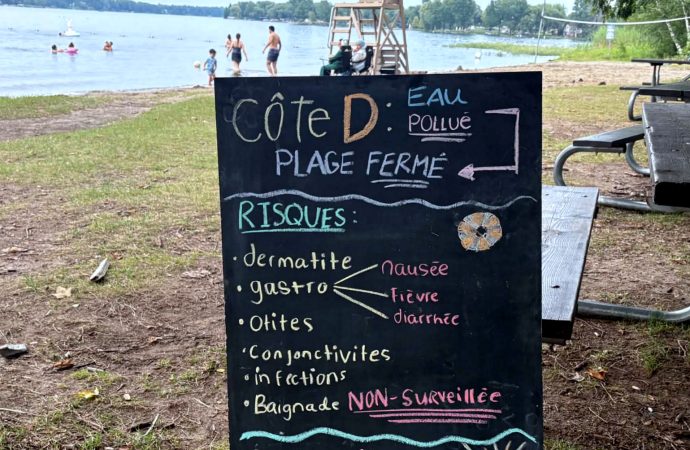 CÔTE D : EAU
POLLUÉ
PLAGE FERMÉ
RISQUES :
• dermatite
• gastro
nausée
fièvre
diarrhée
• Otites
• Conjonctivites
• infections
• Baignade NON-SURVEILLÉE